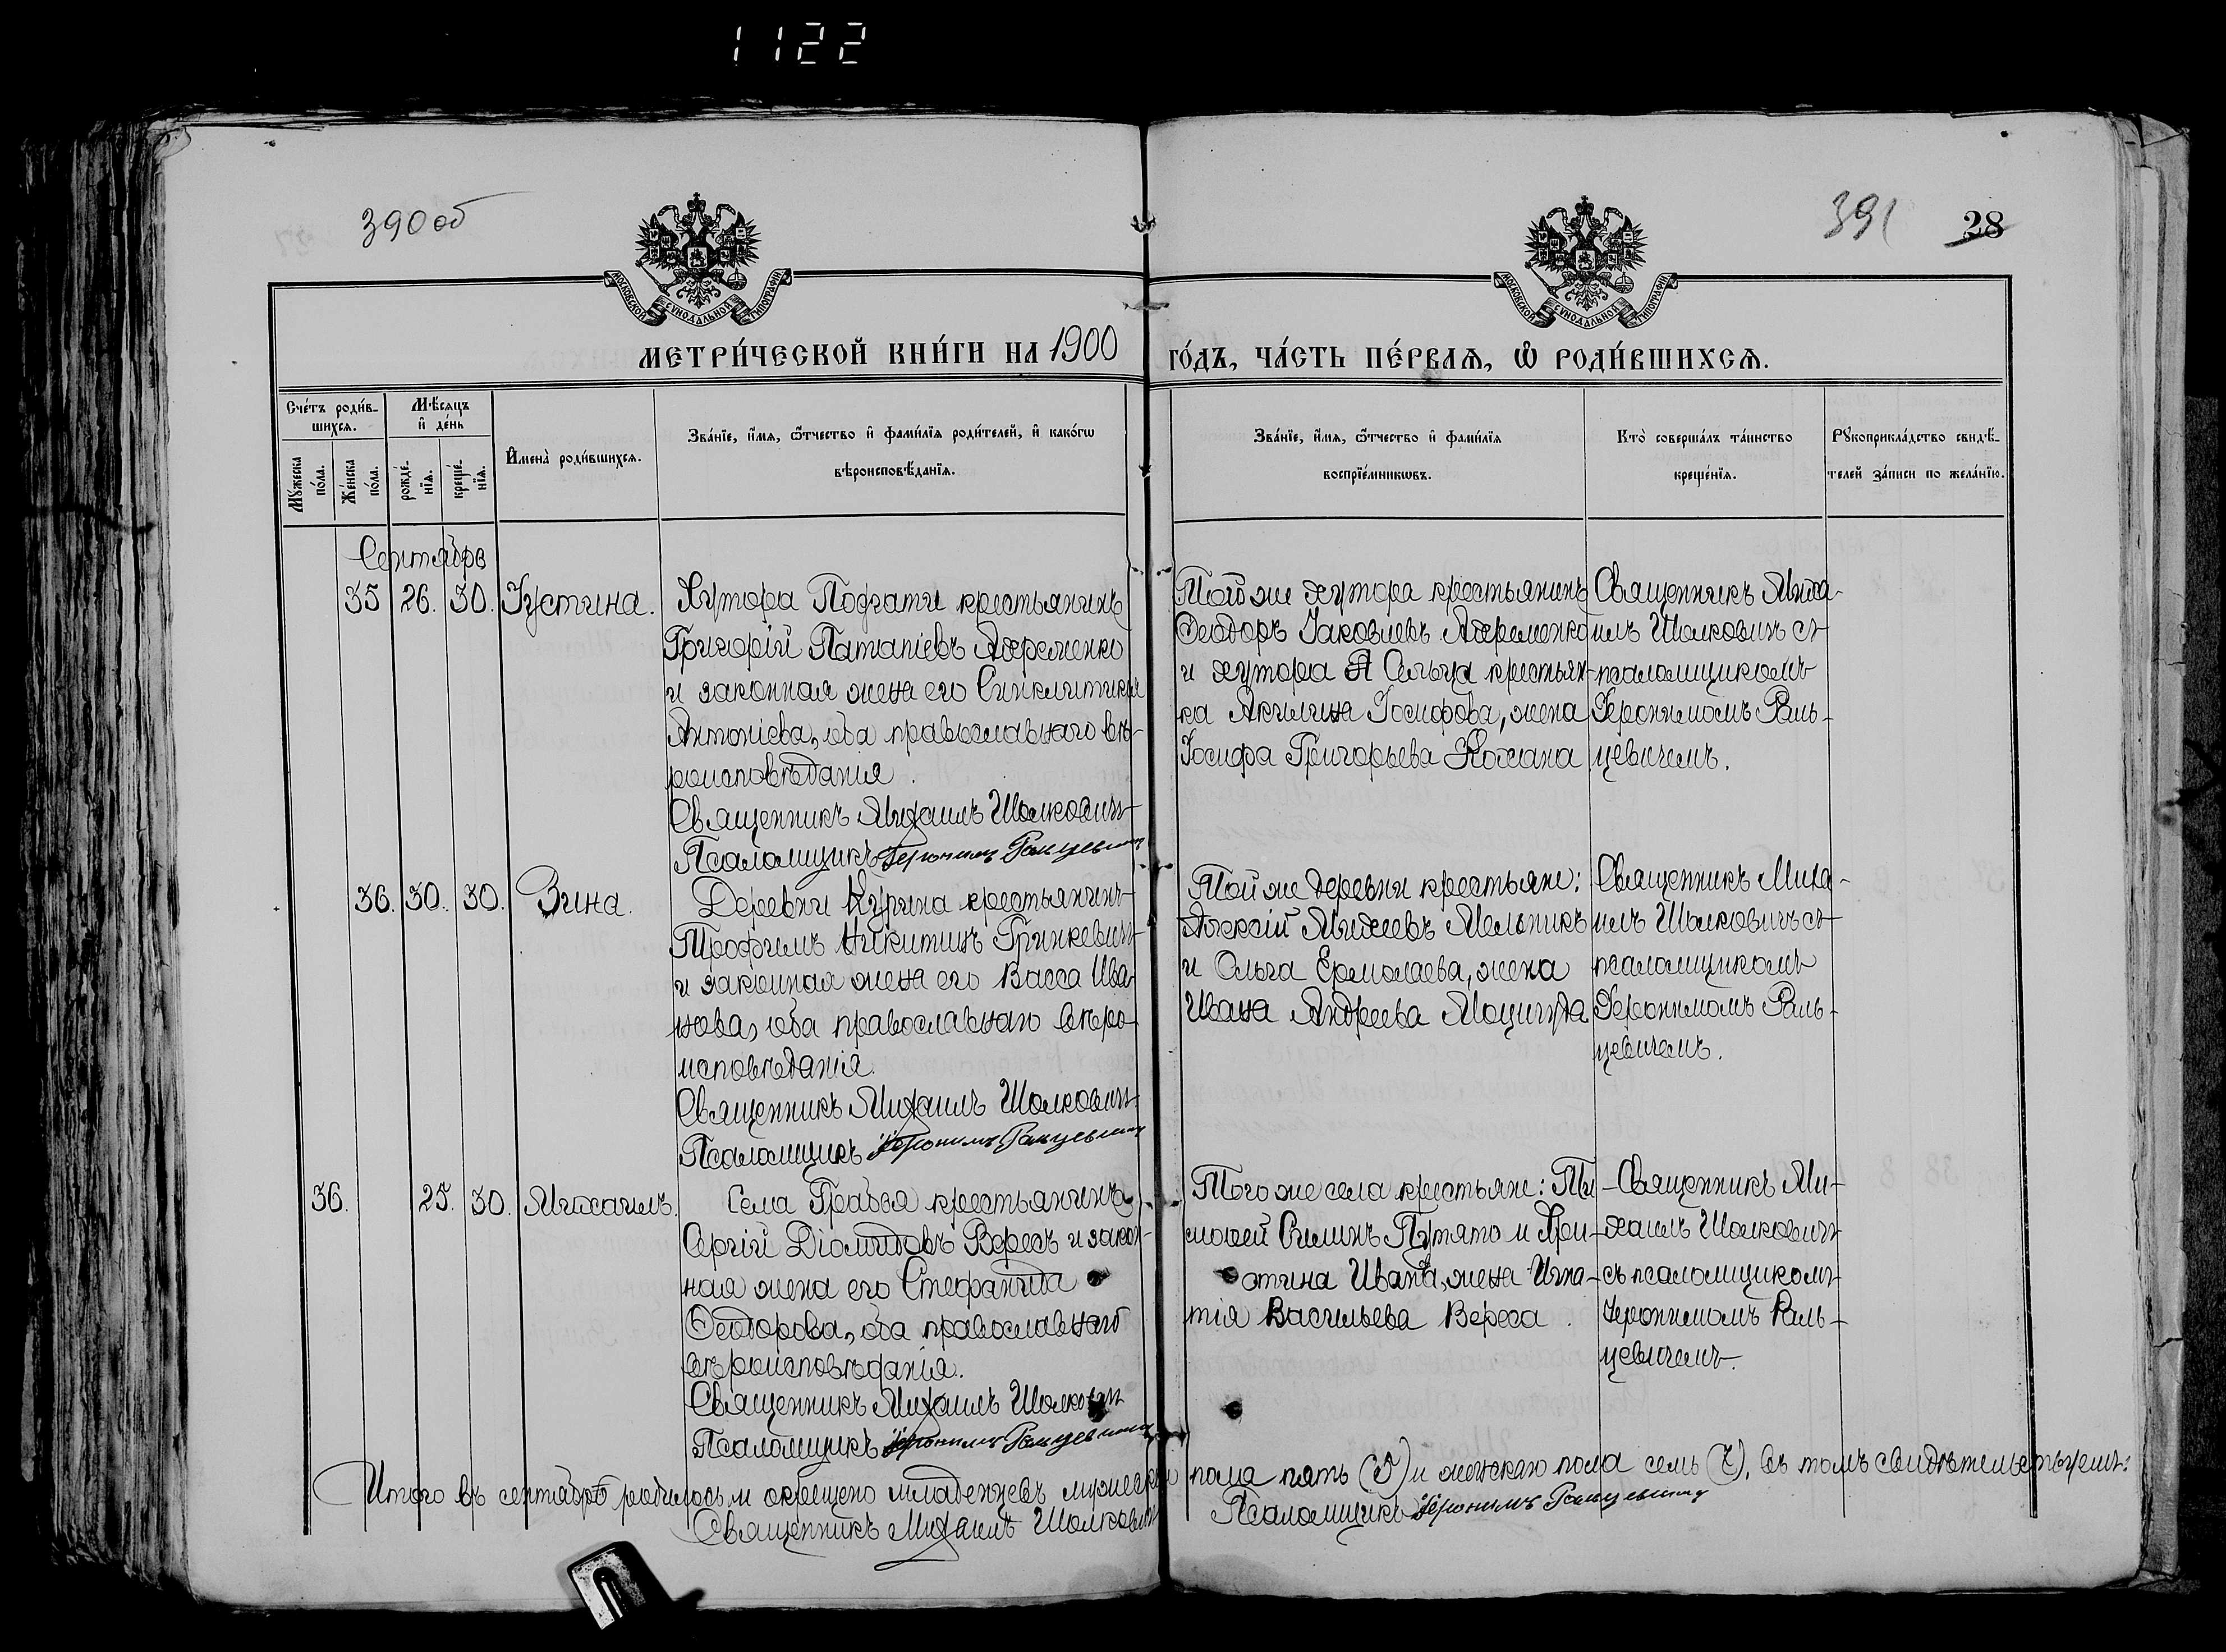 1122
390 об
391 28
МОСКОВСКОЙ СѴНОДАЛЬНОЙ ТИПОГРАФІИ
МОСКОВСКОЙ СѴНОДАЛЬНОЙ ТИПОГРАФІИ
МЕТРИ́ЧЕСКОЙ КНИ́ГИ НА 1900 ГО́ДЪ, ЧА́СТЬ ПЕ́РВАѦ, Ѡ҆ РОДИ́ВШИХСѦ.
Сче́тъ роди́в-
шихсѧ.
Мꙋ́жеска по́ла.
Же́нска по́ла.
Мѣ́сѧцъ и҆ де́нь
рожде́-нїѧ.
креще́-нїѧ.
И҆мена̀ роди́вшихсѧ.
Зва́нїе, и҆́мѧ, ѻ҆́тчество и҆ фами́лїѧ роди́телей, и҆ како́гѡ
вѣроисповѣ́данїѧ.
Зва́нїе, и҆́мѧ, ѻ҆́тчество и҆ фами́лїѧ
воспрїе́мникѡвъ.
Кто̀ соверша́лъ та́инство
креще́нїѧ.
Рꙋкоприкла́дство свидѣ́-
телей за́писи по жела́нїю.
Сентябрь
35 26. 30. Іустина.
Хутора Подгати крестьянинъ
Григорій Патапіевъ Ахременко
и законная жена его Синклитикія
Антоніева, оба православнаго вѣ-
роисповѣданія.
Священникъ Михаилъ Шолковичъ
Псаломщикъ Іеронимъ Ральцевичъ
Того же хутора крестьянинъ
Ѳеодоръ Іаковлевъ Ахременко
и хутора Сельца крестьян-
ка Акилина Іосифова, жена
Іосифа Григорьева Кохана
Священникъ Миха-
илъ Шолковичъ съ
псаломщикомъ
Іеронимомъ Раль-
цевичемъ.
36. 30. 30. Зина.
Деревни Курина крестьянинъ
Трофимъ Никитинъ Гринкевичъ
и законная жена его Васса Ива-
нова, оба православнаго вѣро-
исповѣданія.
Священникъ Михаилъ Шолковичъ
Псаломщикъ Іеронимъ Ральцевичъ
Той же деревни крестьяне:
Алексій Михеевъ Мельникъ
и Ольга Ермолаева, жена
Ивана Андреева Моцигуда
Священникъ Миха-
илъ Шолковичъ съ
псаломщикомъ
Іеронимомъ Раль-
цевичемъ.
36. 25. 30. Михаилъ.
Села Грабья крестьянинъ
Сергій Діомидовъ Вересъ и закон-
ная жена его Стефанида
Ѳеодорова, оба православнаго
вѣроисповѣданія.
Священникъ Михаилъ Шолковичъ
Псаломщикъ Іеронимъ Ральцевичъ
Того же села крестьяне: Ти-
моѳей Силинъ Путято и Хри-
стина Иванова, жена Игна-
тія Васильева Вереса.
Священникъ Ми-
хаилъ Шолковичъ
съ псаломщикомъ
Іеронимомъ Раль-
цевичемъ.
Итого въ сентябрѣ родилось и окрещено младенцевъ мужескаго пола пять (5) и женскаго пола семь (7), въ томъ свидѣтельствуемъ:
Священникъ Михаилъ Шолковичъ Псаломщикъ Іеронимъ Ральцевичъ